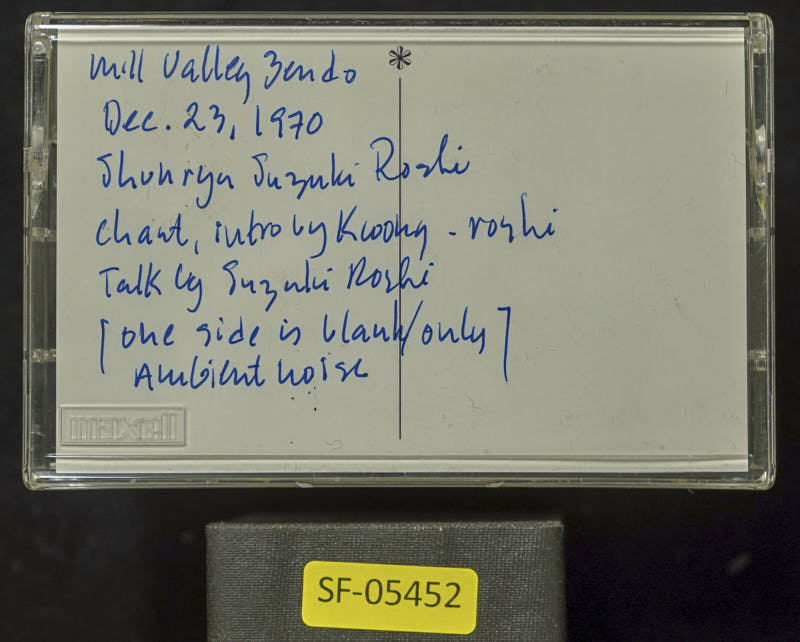 Mill Valley Zendo
*
Dec. 23, 1970
Shunryu Suzuki Roshi
Chant, intro by Kwong - roshi
Talk by Suzuki Roshi
[one side is blank/only]
Ambient noise
maxell
SF-05452